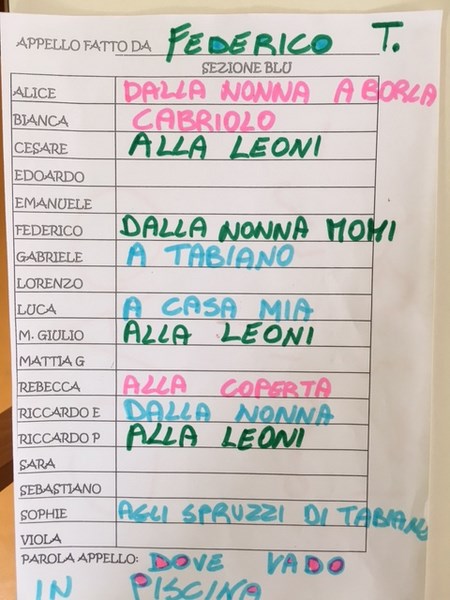 APPELLO FATTO DA FEDERICO T.
SEZIONE BLU
ALICE DALLA NONNA A BORLA
BIANCA CABRIOLO
CESARE ALLA LEONI
EDOARDO
EMANUELE
FEDERICO DALLA NONNA MOMI
GABRIELE A TABIANO
LORENZO
LUCA A CASA MIA
M. GIULIO ALLA LEONI
MATTIA G
REBECCA ALLA COPERTA
RICCARDO E DALLA NONNA
RICCARDO P ALLA LEONI
SARA
SEBASTIANO
SOPHIE AGLI SPRUZZI DI TABIANO
VIOLA
PAROLA APPELLO: DOVE VADO
IN PISCINA